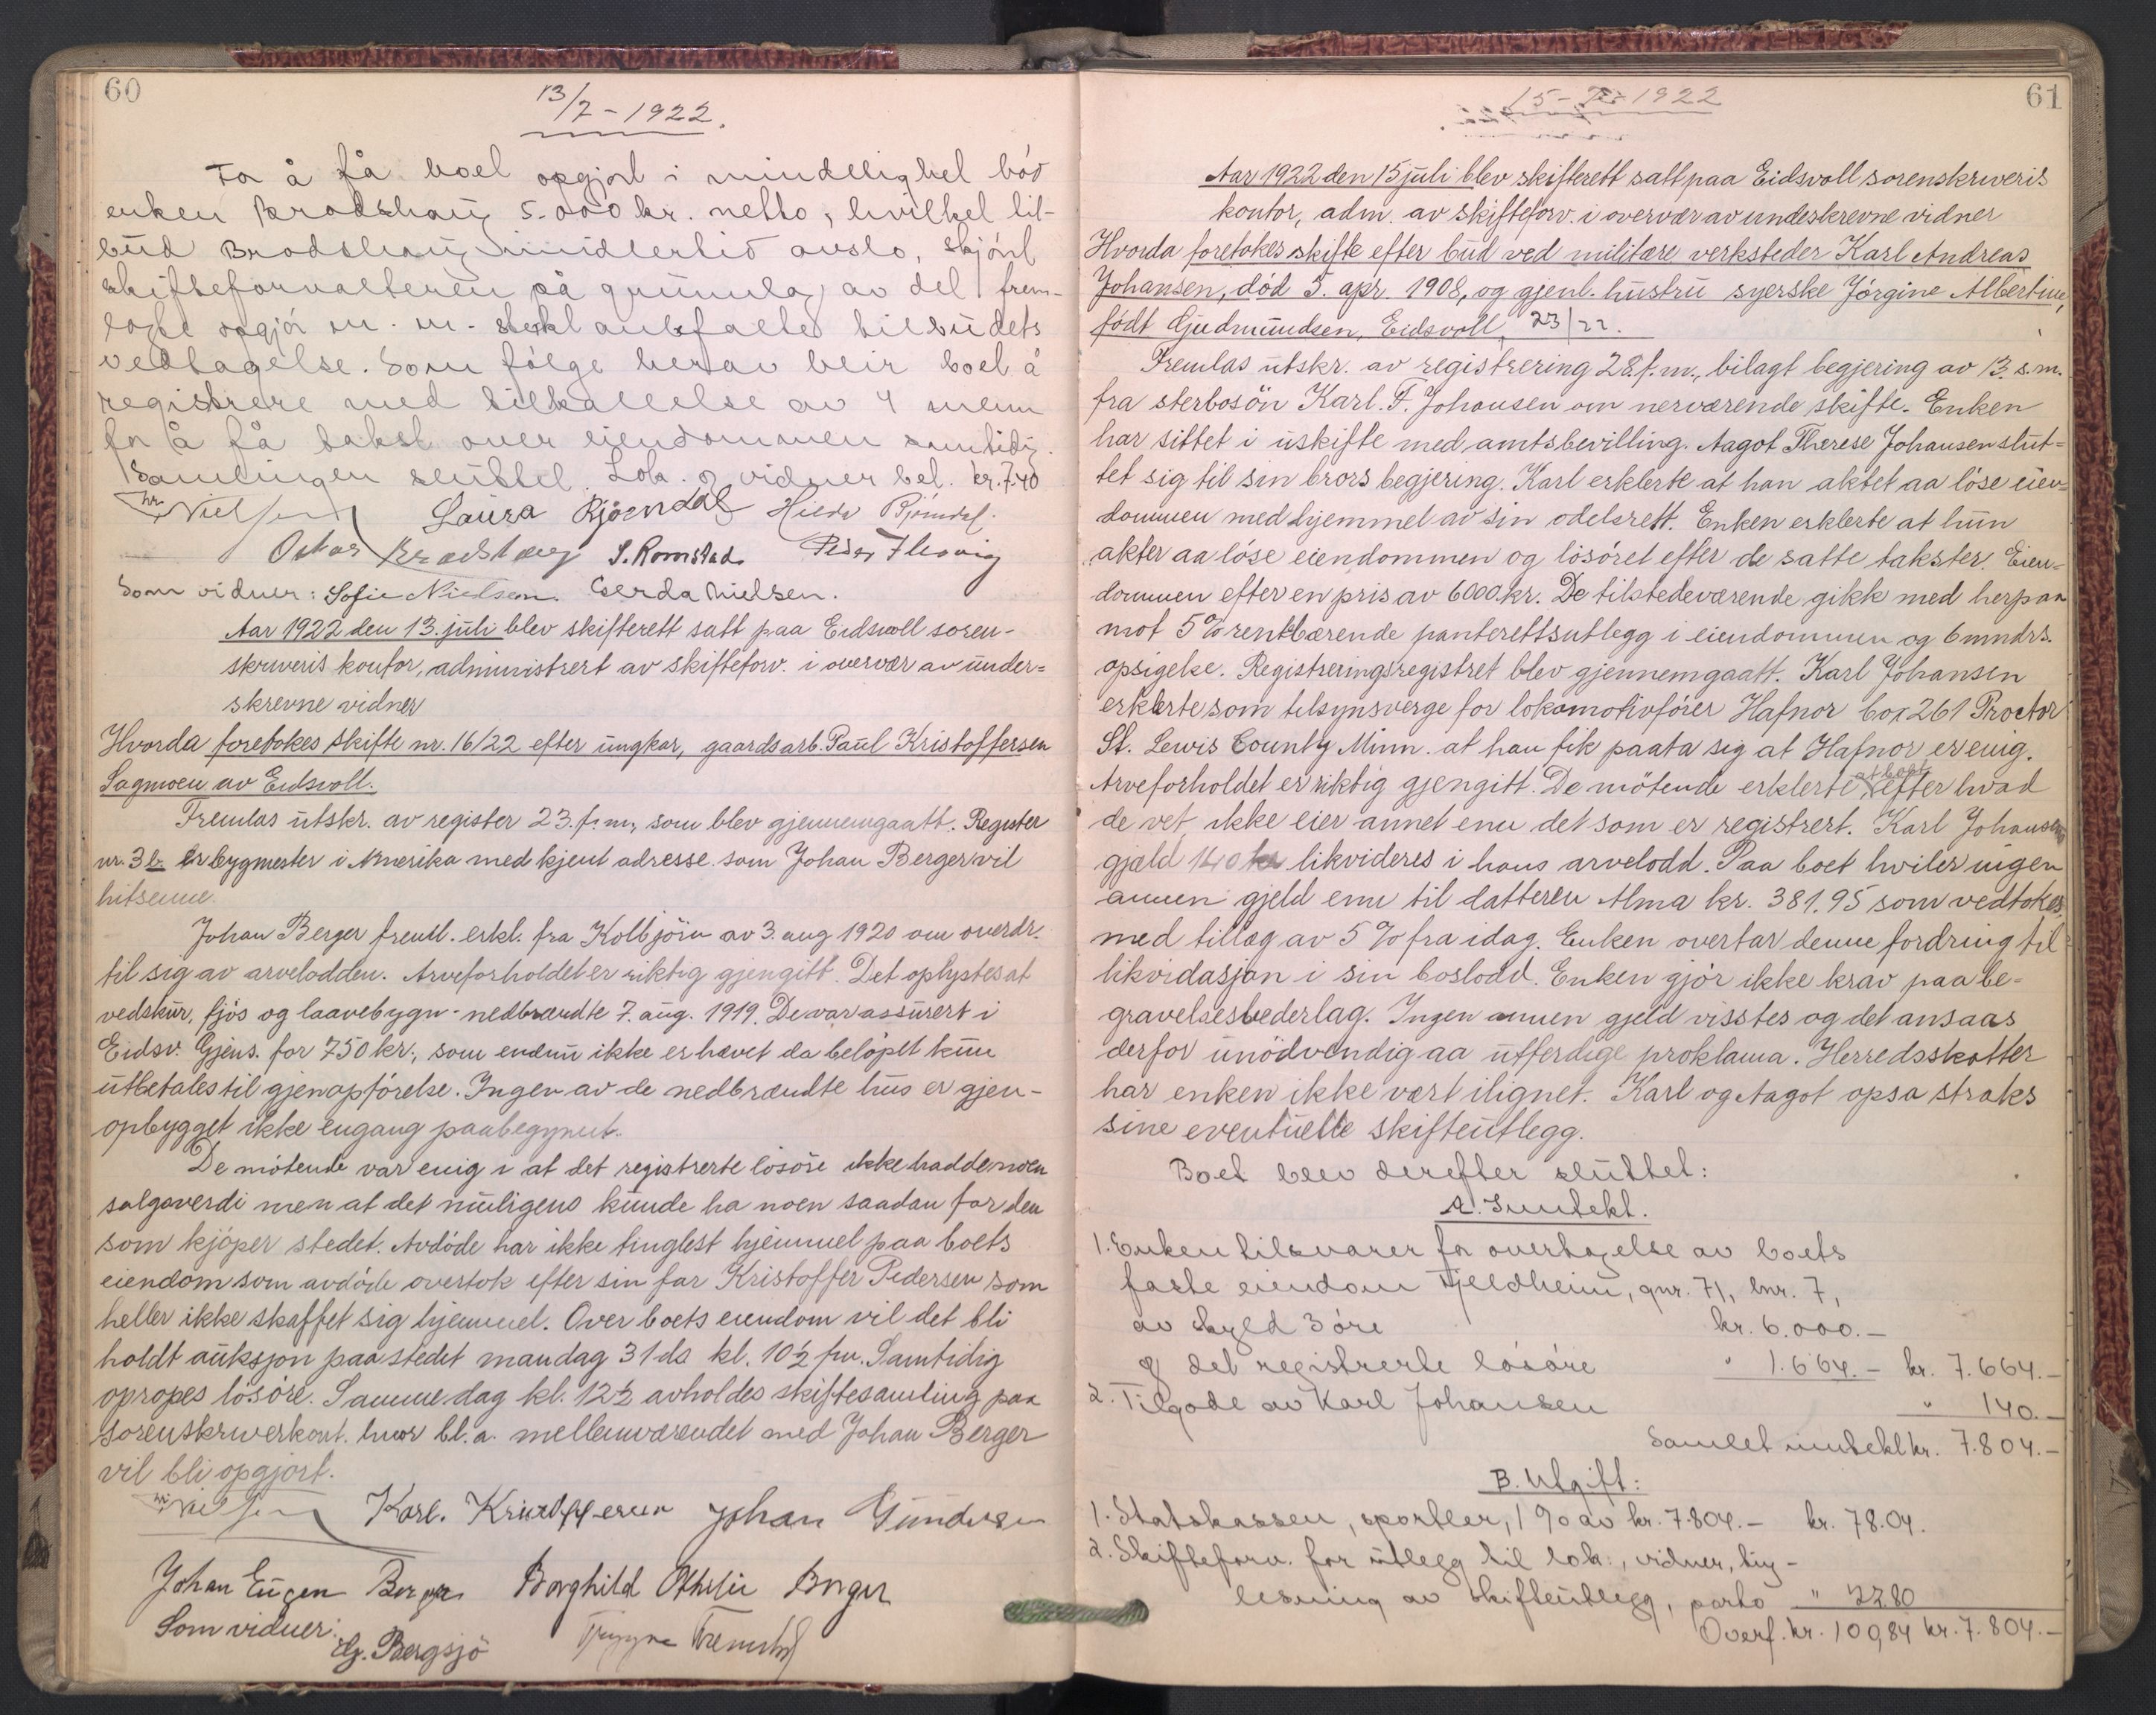 60
13/7 - 1922.
For å få boet opgjort i mindelighet bød
enken Brodshaug 5.000 kr. netto, hvilket til-
bud Brodshaug imidlertid avslo, skjönt
skifteforvalteren på grunnlag av det frem-
lagte opgjör m. m. sterkt anbefalte tilbudets
vedtagelse. Som fölge herav blir boet å
registrere med tilkallelse av 4 menn
for å få takst over eiendommen samtidig.
Samlingen sluttet. Lok. og vidner bet. kr. 7.40
Nielsen Laura Bjørndal Hilda Bjørndal.
Oskar Brodshaug S. Romstad Peder
Som vidner: Sofie Nielsen. Gerda Nielsen.
Aar 1922 den 13. juli blev skifterett satt paa Eidsvoll soren-
skriveris kontor, administrert av skifteforv. i overvær av under=
skrevne vidner
Hvorda foretokes skifte nr. 16/22 efter ungkar, gaardsarb. Paul Kristoffersen
Sagmoen av Eidsvoll.
Fremlas utskr. av register 23. f. m., som blev gjennemgaatt. Register
nr. 3 b er bygmester i Amerika med kjent adresse som Johan Berger vil
hitsenne.
Johan Berger freml. erkl. fra Kolbjörn av 3. aug 1920 om overdr.
til sig av arvelodden. Arveforholdet er riktig gjengitt. Det oplystes at
vedskur, fjös og laavebygn. nedbrændte 7. aug. 1919. De var assurert i
Eidsv. Gjens. for 750 kr., som ennu ikke er hævet da belöpet kun
utbetales til gjenopförelse. Ingen av de nedbrændte hus er gjen-
opbygget ikke engang paabegynnt.
De mötende var enig i at det registrerte lösöre ikke hadde noen
salgsverdi men at det muligens kunde ha noen saadan for den
som kjöper stedet. Avdöde har ikke tinglest hjemmel paa boets
eiendom som avdöde overtok efter sin far Kristoffer Pedersen som
heller ikke skaffet sig hjemmel. Over boets eiendom vil det bli
holdt auksjon paa stedet mandag 31 ds kl. 10½ fm. Samtidig
opropes lösöre. Samme dag kl. 12½ avholdes skiftesamling paa
sorenskriverkont. hvor bl. a. mellemværendet med Johan Berger
vil bli opgjort.
Nielsen Karl. Kristoffersen Johan Gundersen
Johan Eugen Berger Borghild Othilie Berger
Som vidner:
Hg. Bergsjö Trygve
61
15 - 7 - 1922
Aar 1922 den 15 juli blev skifterett satt paa Eidsvoll sorenskriveris
kontor, adm. av skifteforv. i overvær av undeskrevne vidner
Hvorda foretokes skifte efter bud ved militære verksteder Karl Andreas
Johansen, död 5. apr. 1908, og gjenl. hustru syerske Jörgine Albertine,
födt Gjudmundsen, Eidsvoll, 23/22.
Fremlas utskr. av registrering 28. f. m., bilagt begjering av 13. s.m.
fra sterbosön Karl. F. Johansen om nerværende skifte. Enken
har sittet i uskifte med amtsbevilling. Aagot Therese Johansen slut=
tet sig til sin brors begjering. Karl erklerte at han aktet aa löse eien=
dommen med hjemmel av sin odelsrett. Enken erklerte at hun
akter aa löse eiendommen og lösöret efter de satte takster. Eien=
dommen efter en pris av 6000 kr. De tilstedeværende gikk med herpaa
mot 5% rentbærende panterettsutlegg i eiendommen og 6 mndrs.
opsigelse. Registreringsregistret blev gjennemgaatt. Karl Johansen
erklerte som tilsynsverge for lokomotivförer Hafnor box 261 Proctor
St. Lewis County Minn. at han fik paata sig at Hafnor er enig.
Arveforholdet er riktig gjengitt. De mötende erklerte at boet efter hvad
de vet ikke eier annet enn det som er registrert. Karl Johansens
gjæld 140 kr likvideres i hans arvelodd. Paa boet hviler ingen
annen gjeld enn til datteren Alma kr. 381.95 som vedtokes,
med tillæg av 5 % fra idag. Enken overtar denne fordring til
likvidasjon i sin boslodd. Enken gjör ikke krav paa be-
gravelsesvederlag. Ingen annen gjeld visstes og det ansaas
derfor unödvendig aa utferdige proklama. Herredsskatter
har enken ikke vært ilignet. Karl og Aagot opsa straks
sine eventuelle skifteutlegg.
Boet blev derefter sluttet:
A. Inntekt.
1. Enken tilsvarer for overtagelse av boets
faste eiendom Fjeldheim, gnr. 71, bnr. 7,
av skyld 3 öre kr. 6.000.-
og det registrerte lösöre " 1.664.- kr. 7.664.-
2. Tilgode av Karl Johansen " 140.-
Samlet inntekt kr. 7.804.-
B. Utgift:
1. Statskassen, sportler, 1 % av kr. 7.804.- kr. 78.04.
2. Skifteforv. for utlegg til lok:, vidner, ting-
lesning av skifteutlegg, porto " 22.80
Overf. kr. 100,84 kr. 7.804.-